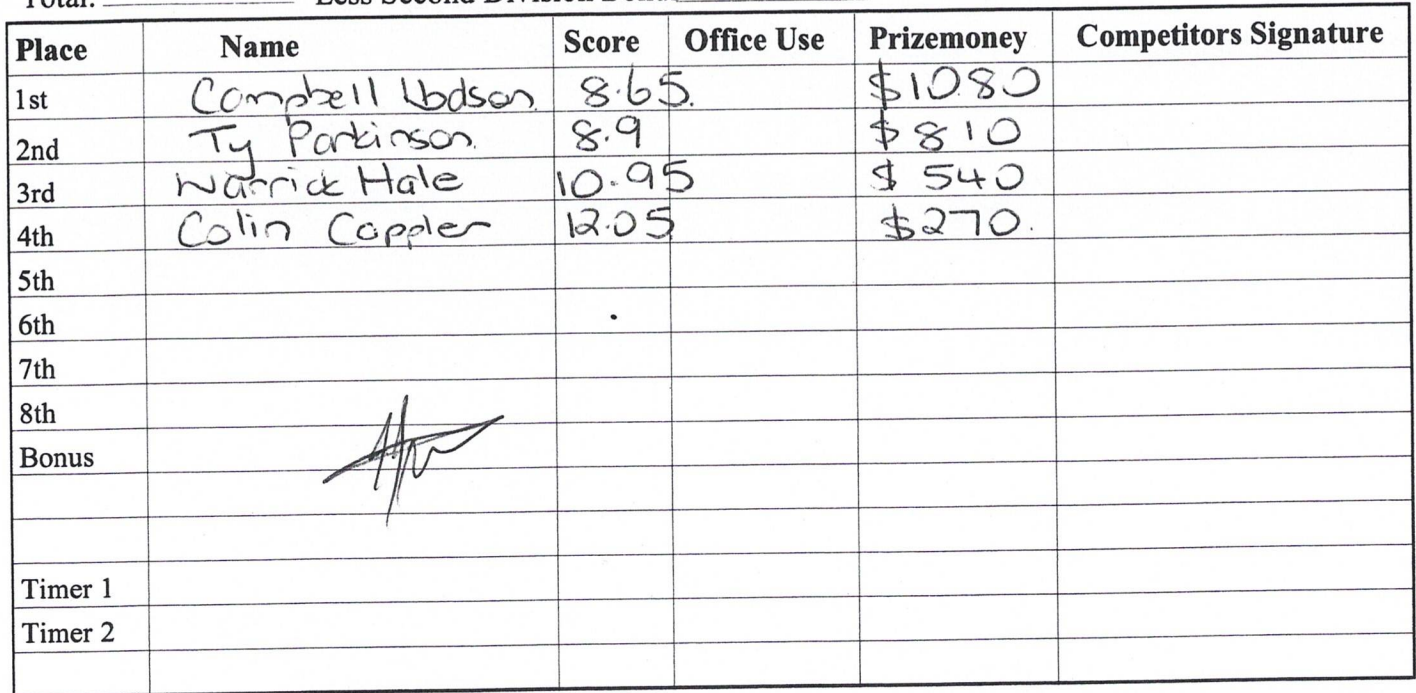 Total: Less Second Division
Place Name Score Office Use Prizemoney Competitors Signature
1st Campbell Hodson. 8.65. $1080
2nd Ty Parkinson. 8.9 $810
3rd Warrick Hale 10.95 $540
4th Colin Coppler 12.05 $270.
5th
6th
7th
8th
Bonus
Timer 1
Timer 2